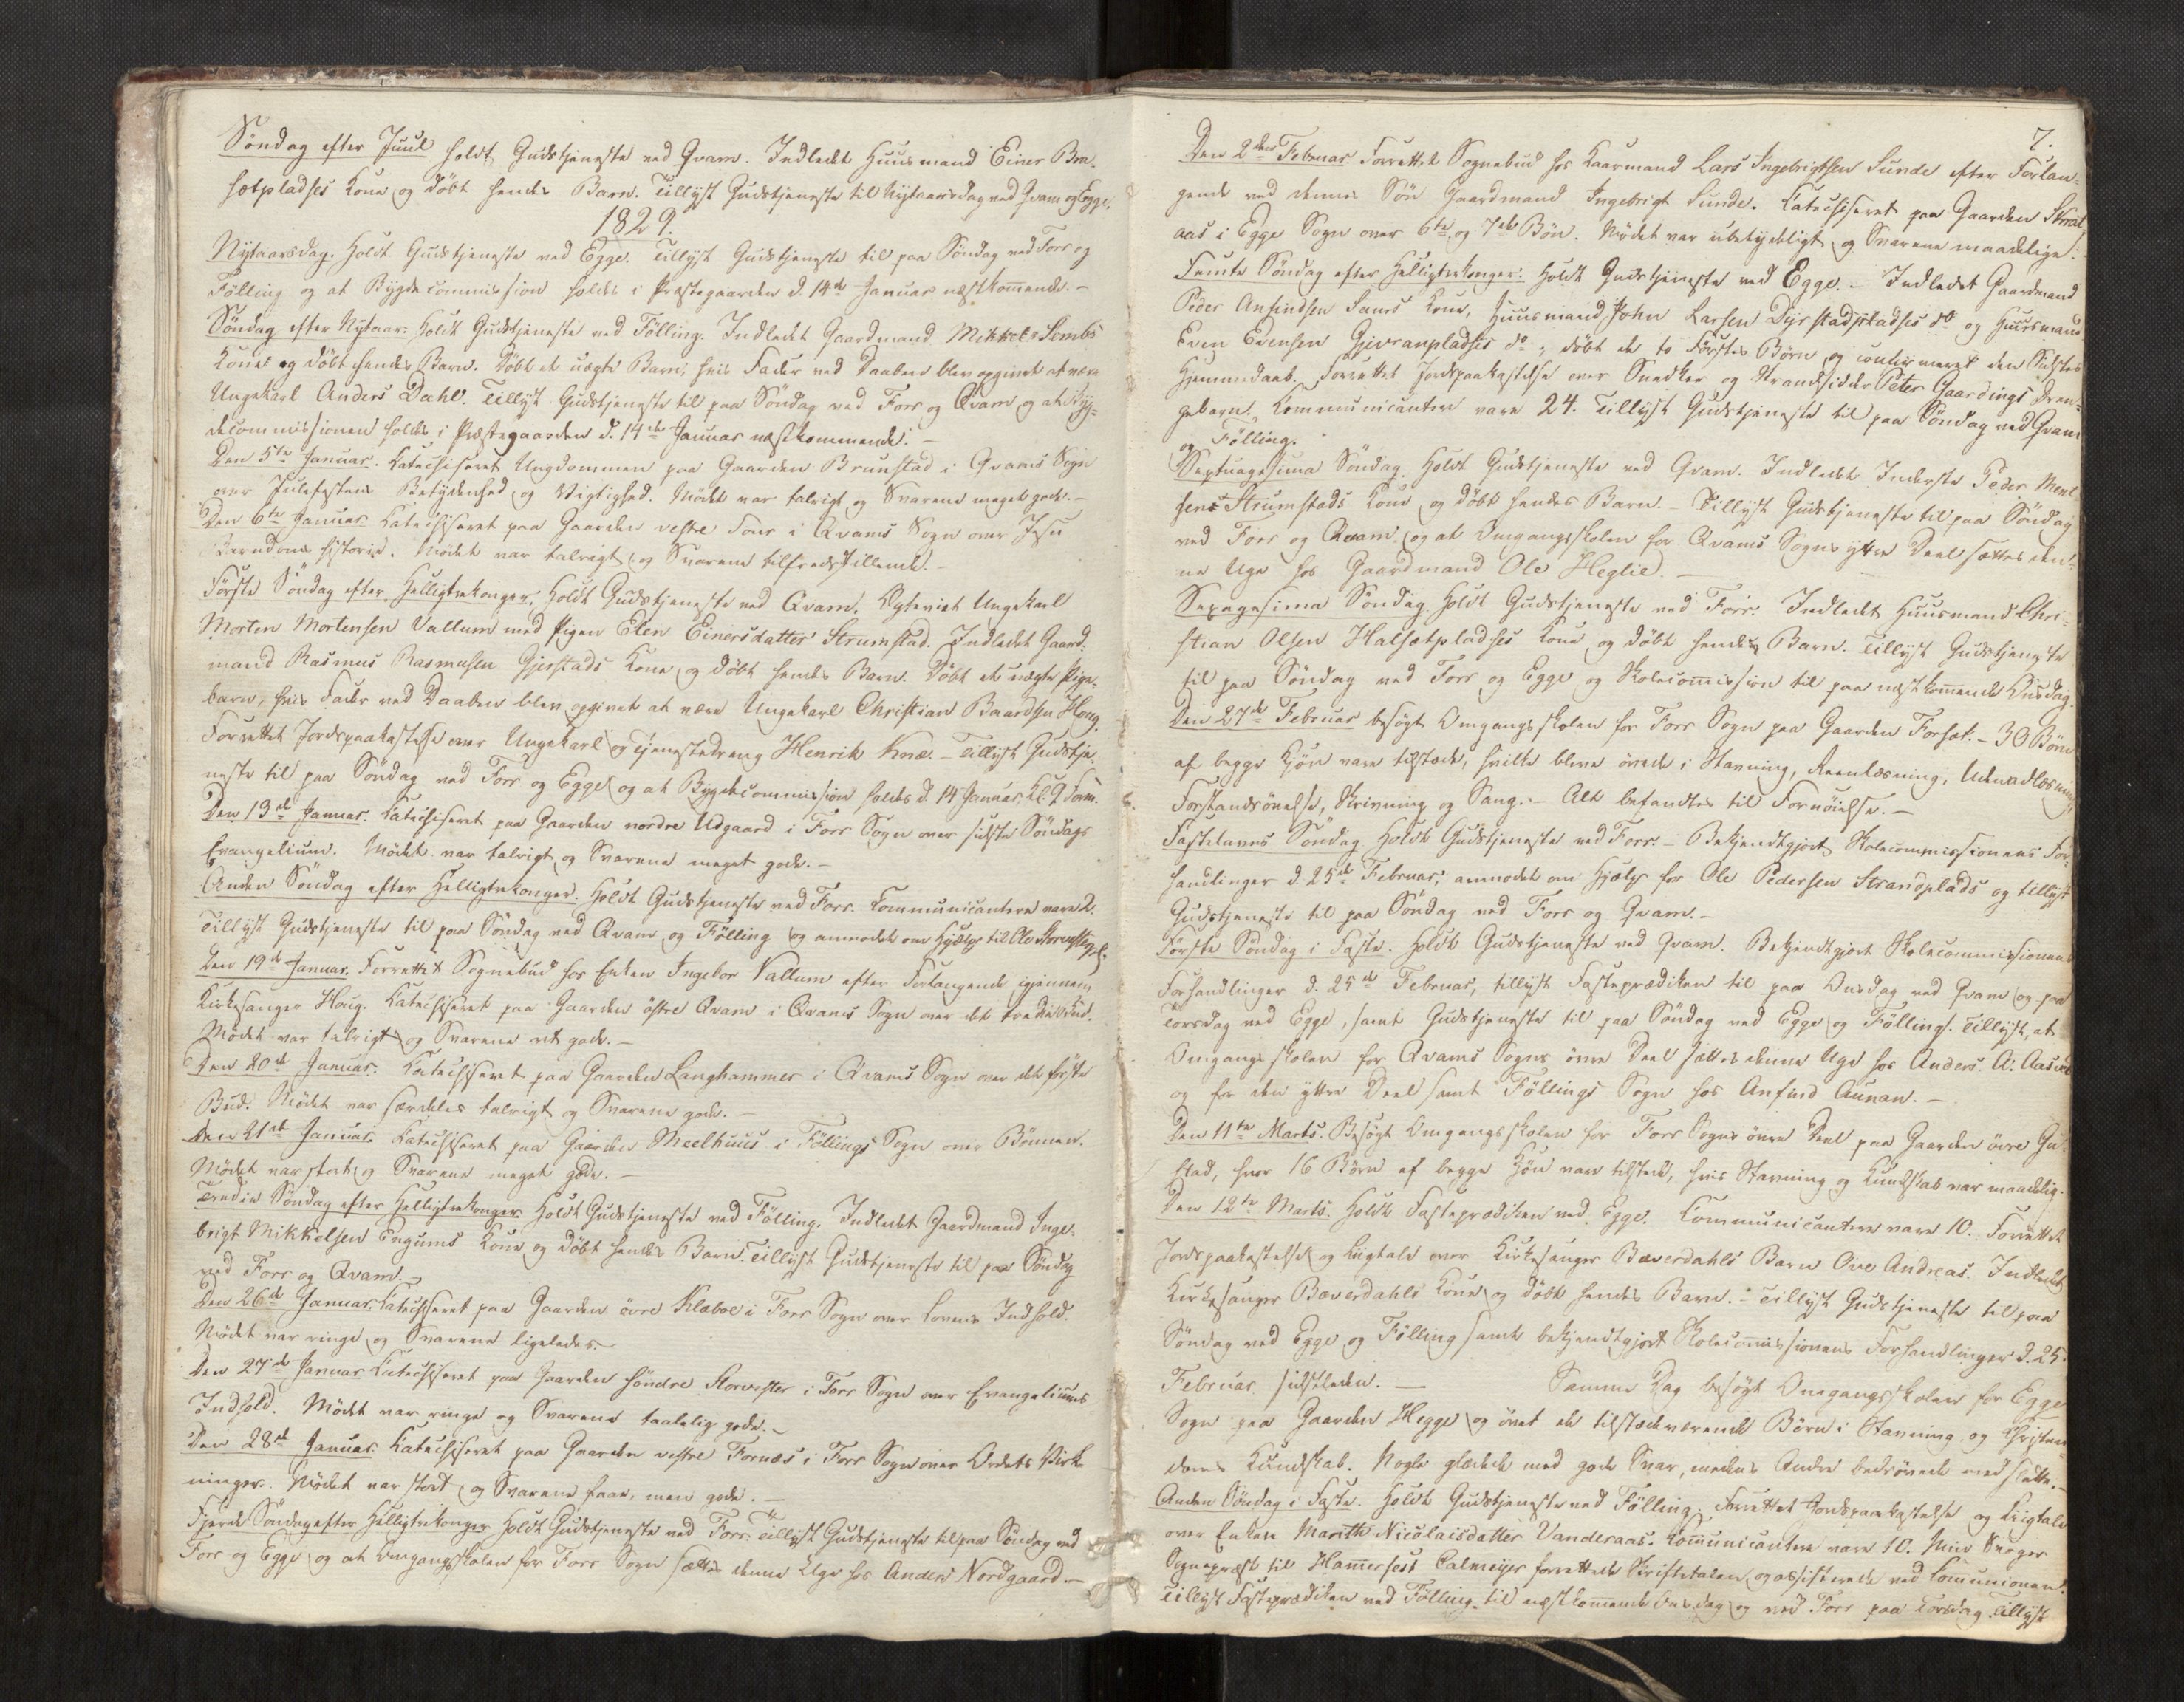 Søndag efter Juul holdt Gudstjeneste ved Qvam. Indledet Huusmand Einer Bra-
sætpladses Kone og døbt hendes Barn. Tillyst Gudstjeneste til Nytaarsdag ved Qvam og Egge.
1829.
Nytaarsdag. Holdt Gudstjeneste ved Egge. Tillyst Gudstjeneste til paa Søndag ved Forr og
Følling og at Bygdecommission holdes i Præstegaarden d. 14de Januar næstkommende. -
Søndag efter Nytaar: Holdt Gudstjeneste ved Følling. Indledet Gaardmand Mikkel Sembs
Kone og døbt hendes Barn. Døbt et uægte Barn, hvis Fader ved Daaben blev opgivet at være
Ungekarl Anders Dahl. Tillyst Gudstjeneste til paa Søndag ved Forr og Qvam og at Byg-
decommissionen holdes i Præstegaarden d. 14de Januar næstkommende. -
Den 5te Januar. Katechiseret Ungdommen paa Gaarden Brunstad i Qvams Sogn
over Julefestens Betydenhed og Vigtighed. Mødet var talrigt og Svarene meget gode. -
Den 6te Januar Katechiseret paa Gaarden vestre Four i Qvams Sogn over Jesu
Barndoms Historie. Mødet var talrigt og Svarene tilfredsstillende. -
Første Søndag efter Helligtrekonger: Holdt Gudstjeneste ved Qvam. Egteviet Ungekarl
Morten Mortensen Vallum med Pigen Elen Einersdatter Strumstad. Indledet Gaard-
mand Rasmus Rasmusen Gjerstads Kone og døbt hendes Barn. Døbt et uægte Pige-
barn, hvis Fader ved Daaben blev opgivet at være Ungekarl Christian Baardsen Haug.
Forrettet Jordspaakastelse over Ungekarl og Tjenestedreng Henrik Knæ. - Tillyst Gudstje-
neste til paa Søndag ved Forr og Egge og at Bygdecommission holdes d. 14 Januar, Kl. 9 Form.
Den 13de Januar. Katechiseret paa Gaarden nordre Udgaard i Forr Sogn over sidste Søndags
Evangelium. Mødet var talrigt og Svarene meget gode. -
Anden Søndag efter Helligtrekonger. Holdt Gudstjeneste ved Forr. Communicantere vare 2.
Tillyst Gudstjeneste til paa Søndag ved Qvam og Følling og anmodet om Hjælp til Ole
Den 19de Januar. Forrettet Sognebud hos Enken Ingebor Vallum efter Forlangende igjennem
Kirkesanger Haug. Katechiseret paa Gaarden østre Qvam i Qvams Sogn over det tredie Bud.
Mødet var talrigt og Svarene ret gode. -
Den 20de Januar. Katechiseret paa Gaarden Langhammer i Qvams Sogn over det første
Bud. Mødet var særdeles talrigt og Svarene gode. -
Den 21de Januar. Katechiseret paa Gaarden Meelhuus i Føllings Sogn over Bønnen.
Mødet var stort og Svarene meget gode. -
Tredie Søndag efter Helligtrekonger Holdt Gudstjeneste ved Følling. Indledet Gaardmand Inge-
brigt Mikkelsen Engums Kone og døbt hendes Barn. Tillyst Gudstjeneste til paa Søndag
ved Forr og Qvam. -
Den 26de Januar. Katechiseret paa Gaarden øvre Klæboe i Forr Sogn over Lovens Indhold.
Mødet var ringe og Svarene ligeledes. -
Den 27de Januar Katechiseret paa Gaarden søndre Storvester i Forr Sogn over Evangeliums
Indhold. Mødet var ringe og Svarene taalelig gode. -
Den 28de Januar Katechiseret paa Gaarden vestre Fornæs i Forr Sogn over Ordets Virk-
ninger. Mødet var stort og Svarene faae, men gode. -
Fjerde Søndag efter Helligtrekonger Holdt Gudstjeneste ved Forr. Tillyst Gudstjeneste til paa Søndag ved
Forr og Egge og at Omgangsskolen for Forr Sogn sættes denne Uge hos Anders Nordgaard. -
7.
Den 2den Februar Forrettet Sognebud hos Kaarmand Lars Ingebrigtsen Sunde efter Forlan-
gende ved dennes Søn Gaardmand Ingebrigt Sunde. Katechiseret paa Gaarden
aas i Egge Sogn over 6te og 7de Bøn. Mødet var ubetydeligt og Svarene maadelige.
Femte Søndag efter Helligtrekonger: Holdt Gudstjeneste ved Egge. - Indledet Gaardmand
Peder Anfindsen Sems Kone, Huusmand John Larsen Dyrstadpladses do og Huusmand
Even Evensen Gjevranpladses do; døbt de to Førstes Børn og confirmeret den Sidstes
Hjemmedaab. Forrettet Jordspaakastelse over Snedker og Strandsidder Peter Gaardings Dren-
gebarn. Kommunicanter vare 24. Tillyst Gudstjeneste til paa Søndag ved Qvam
og Følling.
Septuagesima Søndag. Holdt Gudstjeneste ved Qvam. Indledet Inderste Peder
sens Strumstads Kone og døbt hendes Barn. - Tillyst Gudstjeneste til paa Søndag
ved Forr og Qvam og at Omgangsskolen for Qvams Sogns yttre Deel sættes den-
ne Uge hos Gaardmand Ole Heglie. -
Sexagesima Søndag. Holdt Gudstjeneste ved Forr. Indledet Huusmand Chri-
stian Olsen Halsætpladses Kone og døbt hendes Barn. Tillyst Gudstjeneste
til paa Søndag ved Forr og Egge og Skolecommission til paa næstkommende Onsdag.
Den 27de Februar besøgt Omgangsskolen for Forr Sogn paa Gaarden Forset. - 30 Børn
af begge Kjøn vare tilstede, hvilke bleve øvede i Stavning, Reenlæsning, Udenadlæsning,
Forstandsøvelse, Skrivning og Sang. - Alt befandtes til Fornøielse. -
Fastelavns Søndag Holdt Gudstjeneste ved Forr. - Bekjendtgjort Skolecommissionens For-
handlinger d. 25de Februar, anmodet om Hjælp for Ole Pedersen Strandplads og tillyst
Gudstjeneste til paa Søndag ved Forr og Qvam. -
Første Søndag i Faste. Holdt Gudstjeneste ved Qvam. Bekjendtgjort Skolecommissionens
Forhandlinger d. 25de Februar, tillyst Fasteprædiken til paa Onsdag ved Qvam og paa
Torsdag ved Egge, samt Gudstjeneste til paa Søndag ved Egge og Følling. Tillyst, at
Omgangsskolen for Qvams Sogns øvre Deel sættes denne Uge hos Anders A.
og for den yttre Deel samt Føllings Sogn hos Anfind Aunan. -
Den 11te Marts. Besøgt Omgangsskolen for Forr Sogns øvre Deel paa Gaarden øvre Gu-
stad, hvor 16 Børn af begge Kjøn vare tilstede, hvis Stavning og Kundskab var maadelig.
Den 12te Marts. Holdt Fasteprædiken ved Egge. Communicantere vare 10. Forrettet
Jordspaakastelse og Liigtale over Kirkesanger Bæverdahls Barn Ove Andreas. Indledet
Kirkesanger Bæverdahls Kone og døbt hendes Barn. - Tillyst Gudstjeneste til paa
Søndag ved Egge og Følling samt bekjendtgjort Skolecommissionens Forhandlinger d. 25
Februar sidstleden. - Samme Dag besøgt Omgangsskolen for Egge
Sogn paa Gaarden Hegge og øvet de tilstedeværende Børn i Stavning og Christen-
doms Kundskab. Nogle glædede med gode Svar, medens Andre bedrøvede med slette. -
Anden Søndag i Faste. Holdt Gudstjeneste ved Følling. Forrettet Jordspaakastelse og Liigtale
over Enken Marith Nicolaisdatter Vanderaas. Kommunicantere vare 10. Min Svoger
Sognepræst til Hamerfest Calmeijer forrettede Skriftetalen og assisterede ved Communionen.
Tillyst Fasteprædiken ved Følling til næstkommende Onsdag og ved Forr paa Torsdag. Tillyst